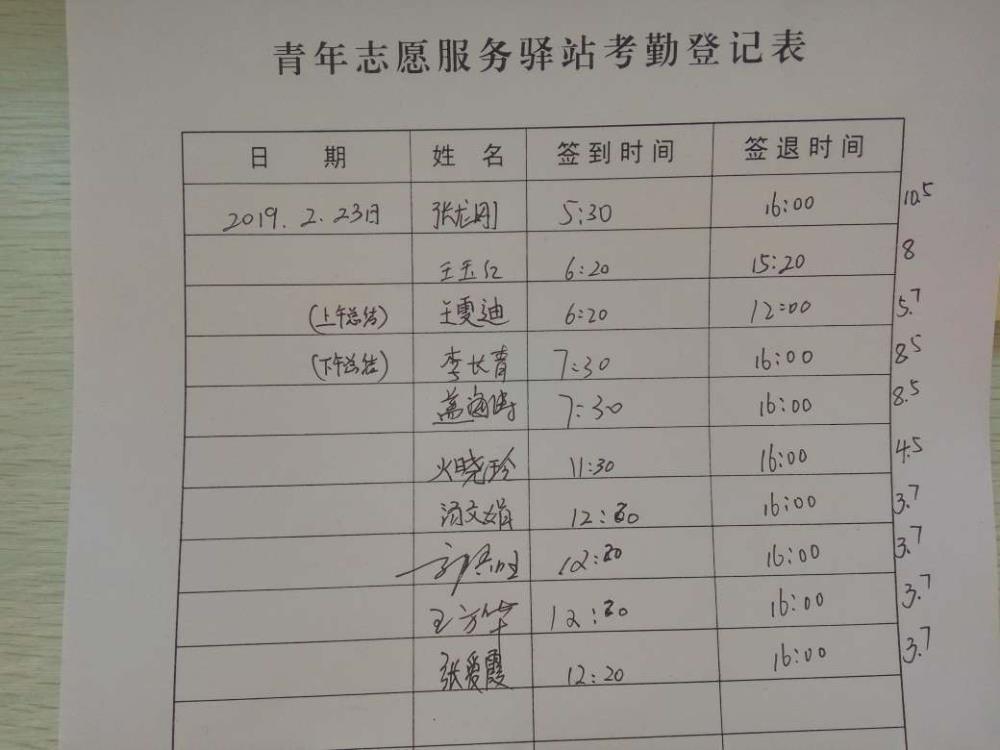 青年志愿服务驿站考勤登记表
日 期 姓 名 签到时间 签退时间
2019. 2. 23日 张龙刚 5:30 16:00 10.5
王玉红 6:20 15:20 8
(上午总结) 王雯迪 6:20 12:00 5.7
(下午总结) 李长青 7:30 16:00 8.5
7:30 16:00 8.5
火晓玲 11:30 16:00 4.5
汤文娟 12:20 16:00 3.7
12:20 16:00 3.7
王方华 12:20 16:00 3.7
张爱霞 12:20 16:00 3.7